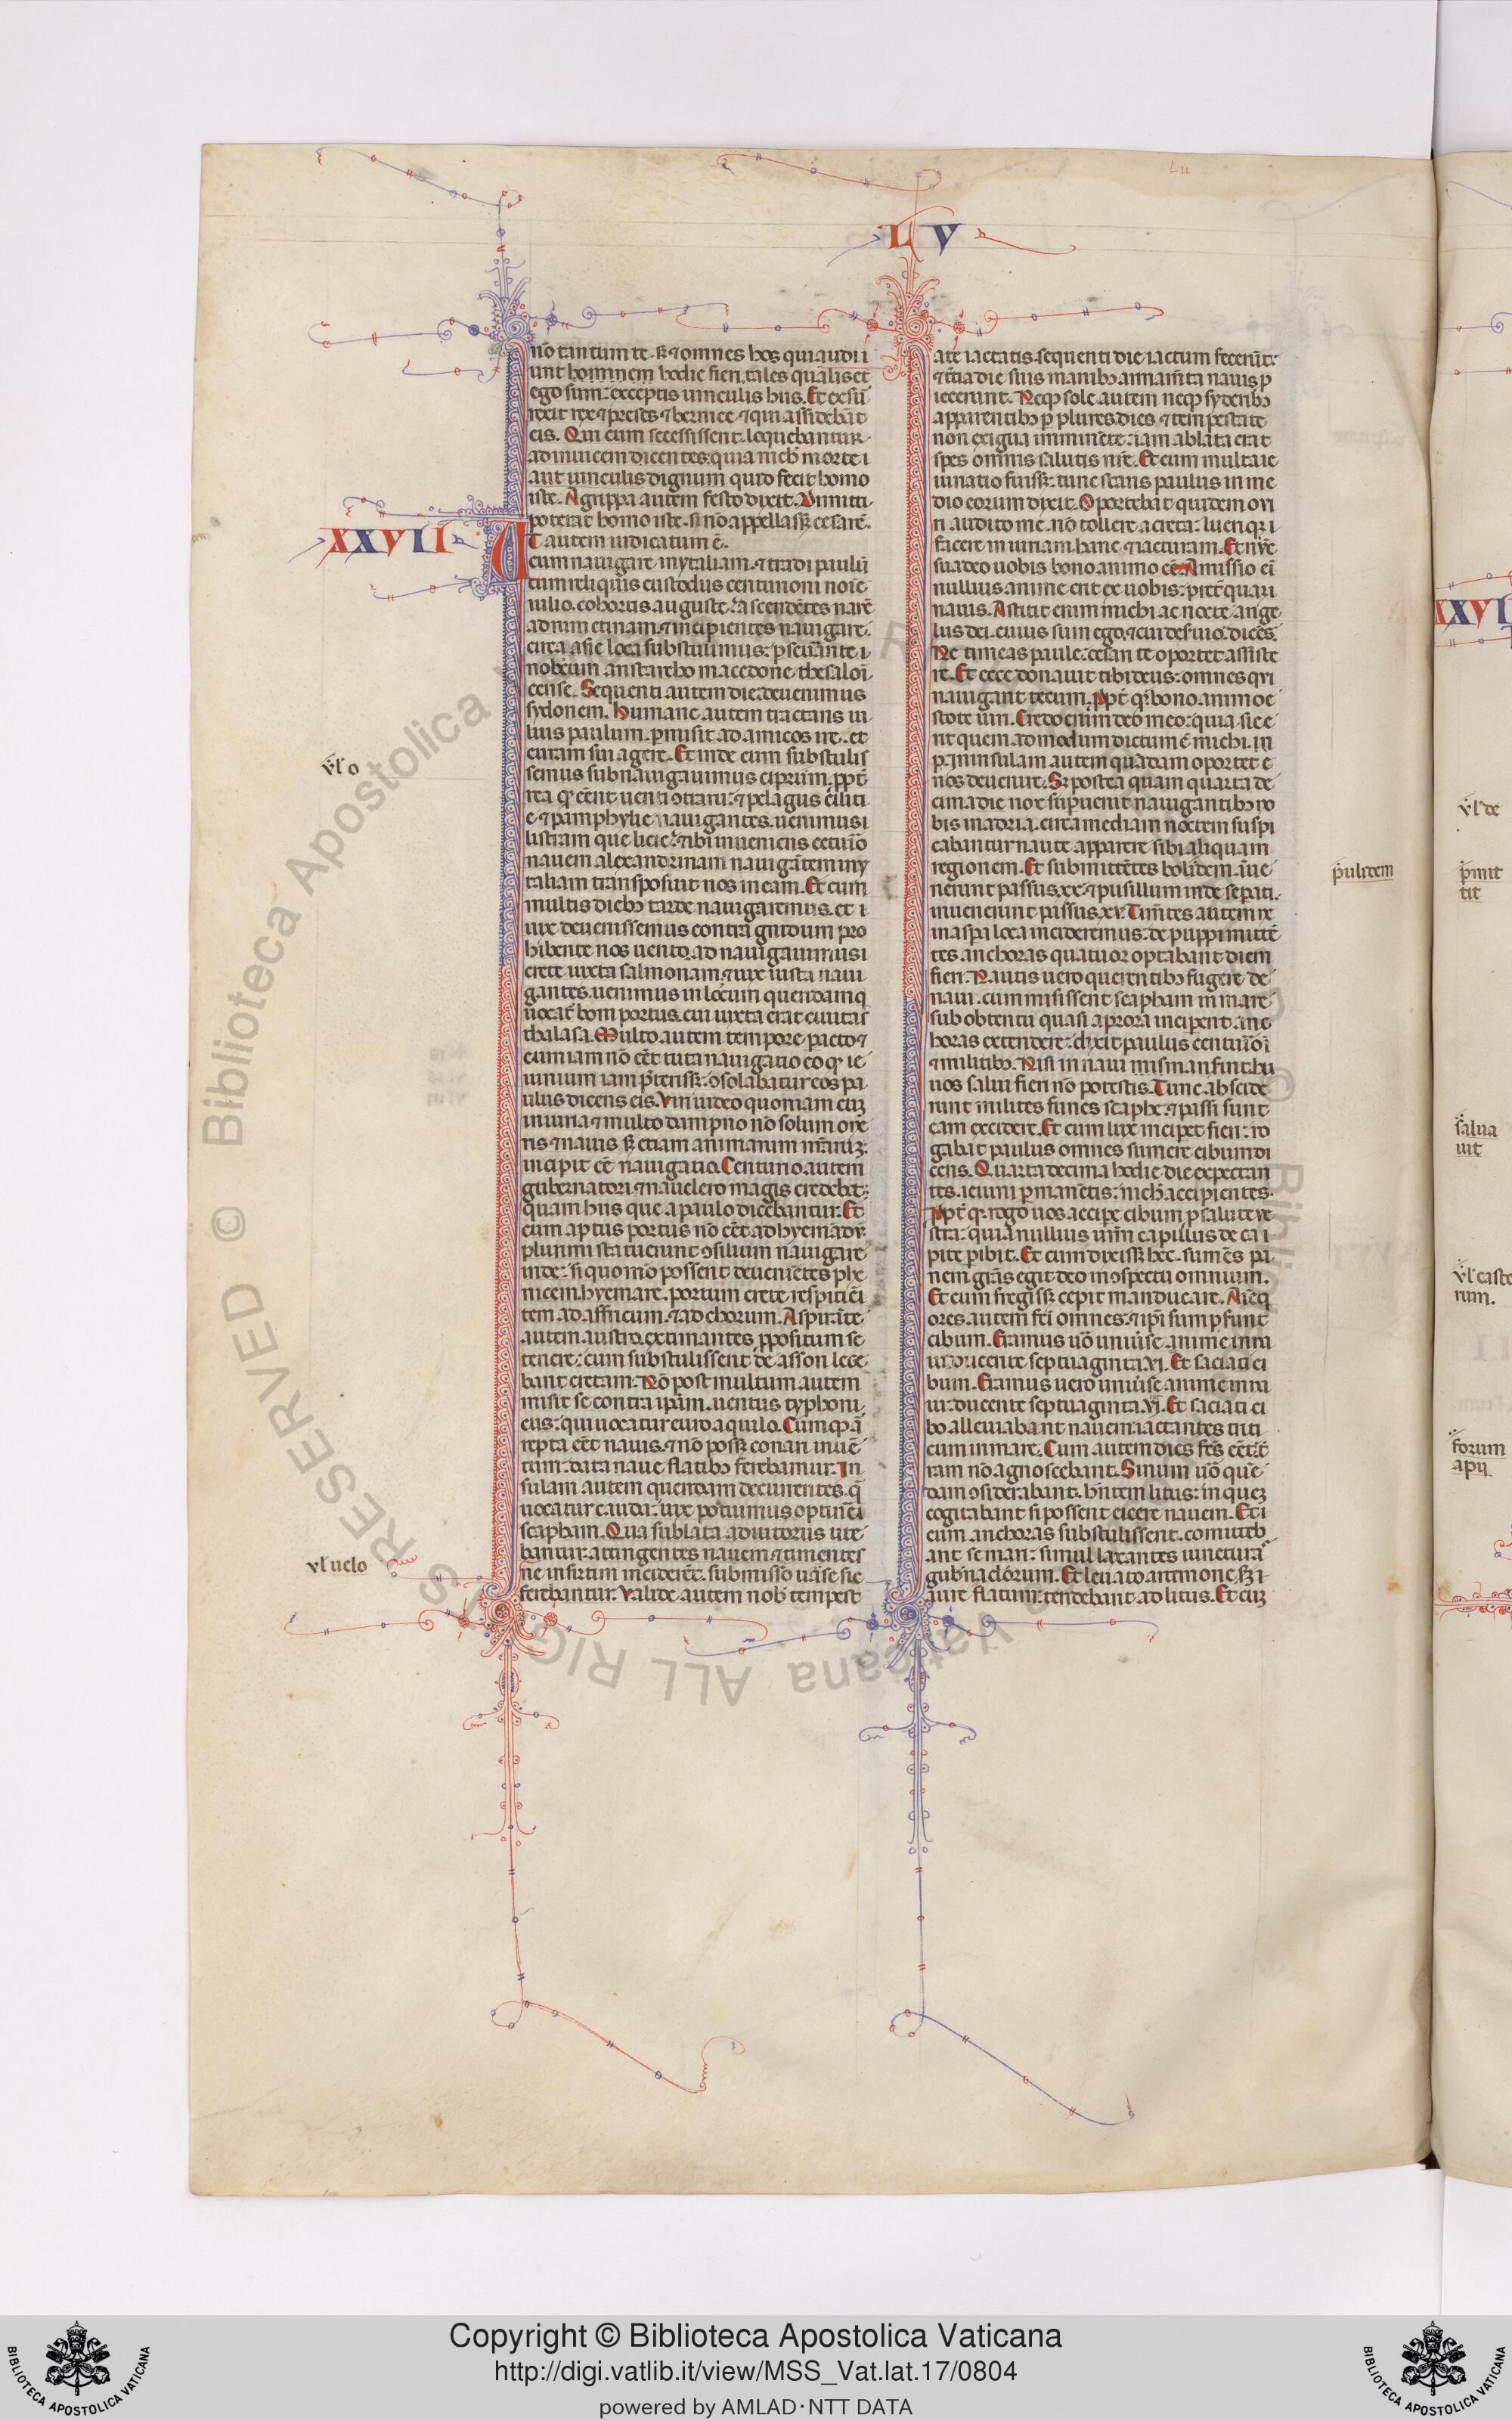 L V
nō tantum te. sꝫ ⁊ omnes hos qui audii
unt hominem hodie fieri tales qualis et
ego sum: exceptis uinculis hiis. Et exsur
rexit rex ⁊ preses ⁊ bernice ⁊ qui assidebāt
eis. Qui cum secessissent. loquebantur
ad inuicem dicentes. quia nich̄ morte i
aut uinculis dignum quid fecit homo
iste. Agrippa autem festo dixit. Dimitti
poterat homo iste. si nō appellassꝫ cesarē.
XXVII
UT autem iudicatum ē.
eum nauigare in ytaliam. ⁊ tradi paulū
cum reliquis custodiis centurioni noīe
iulio. cohortis auguste. ascendētes nauē
adrumetinam. ⁊ incipientes nauigare.
circa asie loca substulimus: ꝑseuāнte i
nobēum aristarcho macedone thesaloī
cense. Sequenti autem die: deuenimus
sydonem. Humane autem tractans iu
lius paulum. ꝑmisit ad amicos ire. et
curam sui agere. Et inde cum substulis
semus subnauigauimus ciprum. ꝓpt̄
vl̄ o
rea ꝙ eēnt uenti ꝯtrarii: ⁊ pelagus ciliti
e ⁊ pamphylie nauigantes. uenimus i
listram que licie: ⁊ ibi inueniens cētuīo
nauem alexandrinam nauigātem in y
taliam transposuit nos in eam. Et cum
multis dieb; tarde nauigaremus. et i
uix deuenissemus contra gnidum pro
hibente nos uento. ad nauigauimusi
crete iuxta salmonam. ⁊ uix iuxta naui
gantes. uenimus in locum quendam q
uocat̄ boni portus. cui iuxta erat ciuitas
thalasa. Multo autem tempore ꝑacto ⁊
cum iam nō eēt tuta nauigatio eo ꝙ ie
iunium iam p̄terissꝫ: ꝯsolabatur eos pa
ulus dicens eis. Viri uideo quoniam cuꝫ
iniuria ⁊ multo dampno nō solum one
ris ⁊ nauis sꝫ etiam animarum nr̄aruꝫ:
incipit eē nauigatio. Centurio autem
gubernatori ⁊ nauclero magis credebat:
quam hiis que a paulo dicebantur. Et
cum aptus portus nō eēt ad hyemādū
plurimi statuerunt ꝯsilium nauigare
inde: si quo mō possent deueniētes phe
nicem. hyemare. portum crete respiciēi
tem ad affricum. ⁊ ad chorum. Aspirāte
autem austro. extimantes ꝓpositum se
tenere: cum substulissent de asson lege
bant cretam. Nō post multum autem
misit se contra ipām. uentus typhoni
cus: qui uocatur euro aquilo. Cumqꝫ ā
repta eēt nauis. ⁊ nō possꝫ conari in uē
tum: data naue flatib; ferebamur. In
sulam autem quendam decurrentes. q̄
uocatur cauda: uix potuimus optinēi
scapham. Qua sublata adiutoriis ute
bantur: accingentes nauem. ⁊ timentes
vl̄ uelo
ne in sirtim inciderēt. submisso uāse sic
ferebantur. Valide autem nob̄ tempest
ate iactatis. sequenti die iactum fecerūt:
⁊ t̄tia die suis manib; armam̄ta nauis ꝓ
iecerunt. Neqꝫ sole autem neqꝫ syderib;
apparentib; ꝑ plures dies. ⁊ tempestate
non exigua imminēte: iam ablata erat
spes omnis salutis nr̄e. Et cum multa ie
iunatio fuissꝫ: tunc stans paulus in me
dio eorum dixit. Oportebat quidem o vi
ri audito me. nō tollere a creta: lucrique i
facere iniuriam hanc ⁊ iacturam. Et nūc
suadeo uobis bono animo eē. Amissio eī
nullius anime erit ex uobis: p̄ter̄quā
nauis. Astitit enim michi ac nocte ange
lus dei. cuius sum ego. ⁊ cui des̄uio. dicēs.
Ne timeas paule: cesari te oportet assiste
re. Et ecce donauit tibi deus: omnes qui
nauigant tecum. Ꝓpt̄ qꝫ bono animo e
stote uiri. Credo enim deo meo: quia sic e
rit quemadmodum dictum ē michi. in
p̄. In insulam autem quadam oportet e
nos deuenire. Sꝫ postea quam quarta de
cima die nox sup̄uenit nauigantib; no
bis in adria. circa mediam noctem suspi
cabantur naute apparere sibi aliquam
regionem. Et submittētes bolidem. īue
p̄ulidem
nerunt passus. xx. ⁊ pusillum inde sepati.
inuenerunt passus. xv. Timētes autem ne
in aspa loca incideremus: de puppi mittē
tes anchoras quatuor optabant diem
fieri. Nautis uero querentib; fugere de
naui. cum misissent scapham in mare
sub obtentu quasi a prora inciperent anc
horas extendere: dixit paulus centurioī
⁊ militib;. Nisi in naui māserint hii
uos salui fieri nō potestis. Tunc abscide
runt milites funes scaphe: ⁊ passi sunt
eam excidere. Et cum lux inciperet fieri: ro
gabat paulus omnes sumere cibum di
cens. Quarta decima hodie die expectan
tes. ieiuni ꝑmanētis: nich̄ accipientes.
Ꝓpt̄ qꝫ rogo uos accipe cibum ꝓ salute ue
stra: quia nullius ur̄m capillus de ca i
pite peribit. Et cum dixissꝫ hec. sumēs pa
nem. gr̄as egit deo in ꝯspectu omnium.
Et cum fregissꝫ cepit manducare. Anīeq
ores autem fc̄i omnes: ⁊ ip̄i sumpserunt
cibum. Eramus uō uniu̇se anime in na
ui: ducente septuaginta. vi. Et saciati ci
bum. Eramus uero uniuse anime in na
ui: ducente septuaginta. vi. Et saciati ci
bo alleuiabant nauem: iactantes triti
cum in mare. Cum autem dies fc̄s eēt: t̄
ram nō agnoscebant. Sinum uō quē
dam ꝯsiderabant. hn̄tem litus: in queꝫ
cogitabant si possent eicere nauem. Et i
cum anchoras substulissent. comitteb
ant se mari: simul laxantes iunctura
gub̄naclorum. Et leuato artimone. s̄ꝫ i
aure flatum: tendebant ad litus. Et cuꝫ
XXVI
vl̄ de
p̄mit
tit
salua
uit
vl̄ casto
rum.
forum
apii
Copyright © Biblioteca Apostolica Vaticana
http://digi.vatlib.it/view/MSS_Vat.lat.17/0804
powered by AMLAD · NTT DATA
BIBLIOTECA APOSTOLICA VATICANA
BIBLIOTECA APOSTOLICA VATICANA